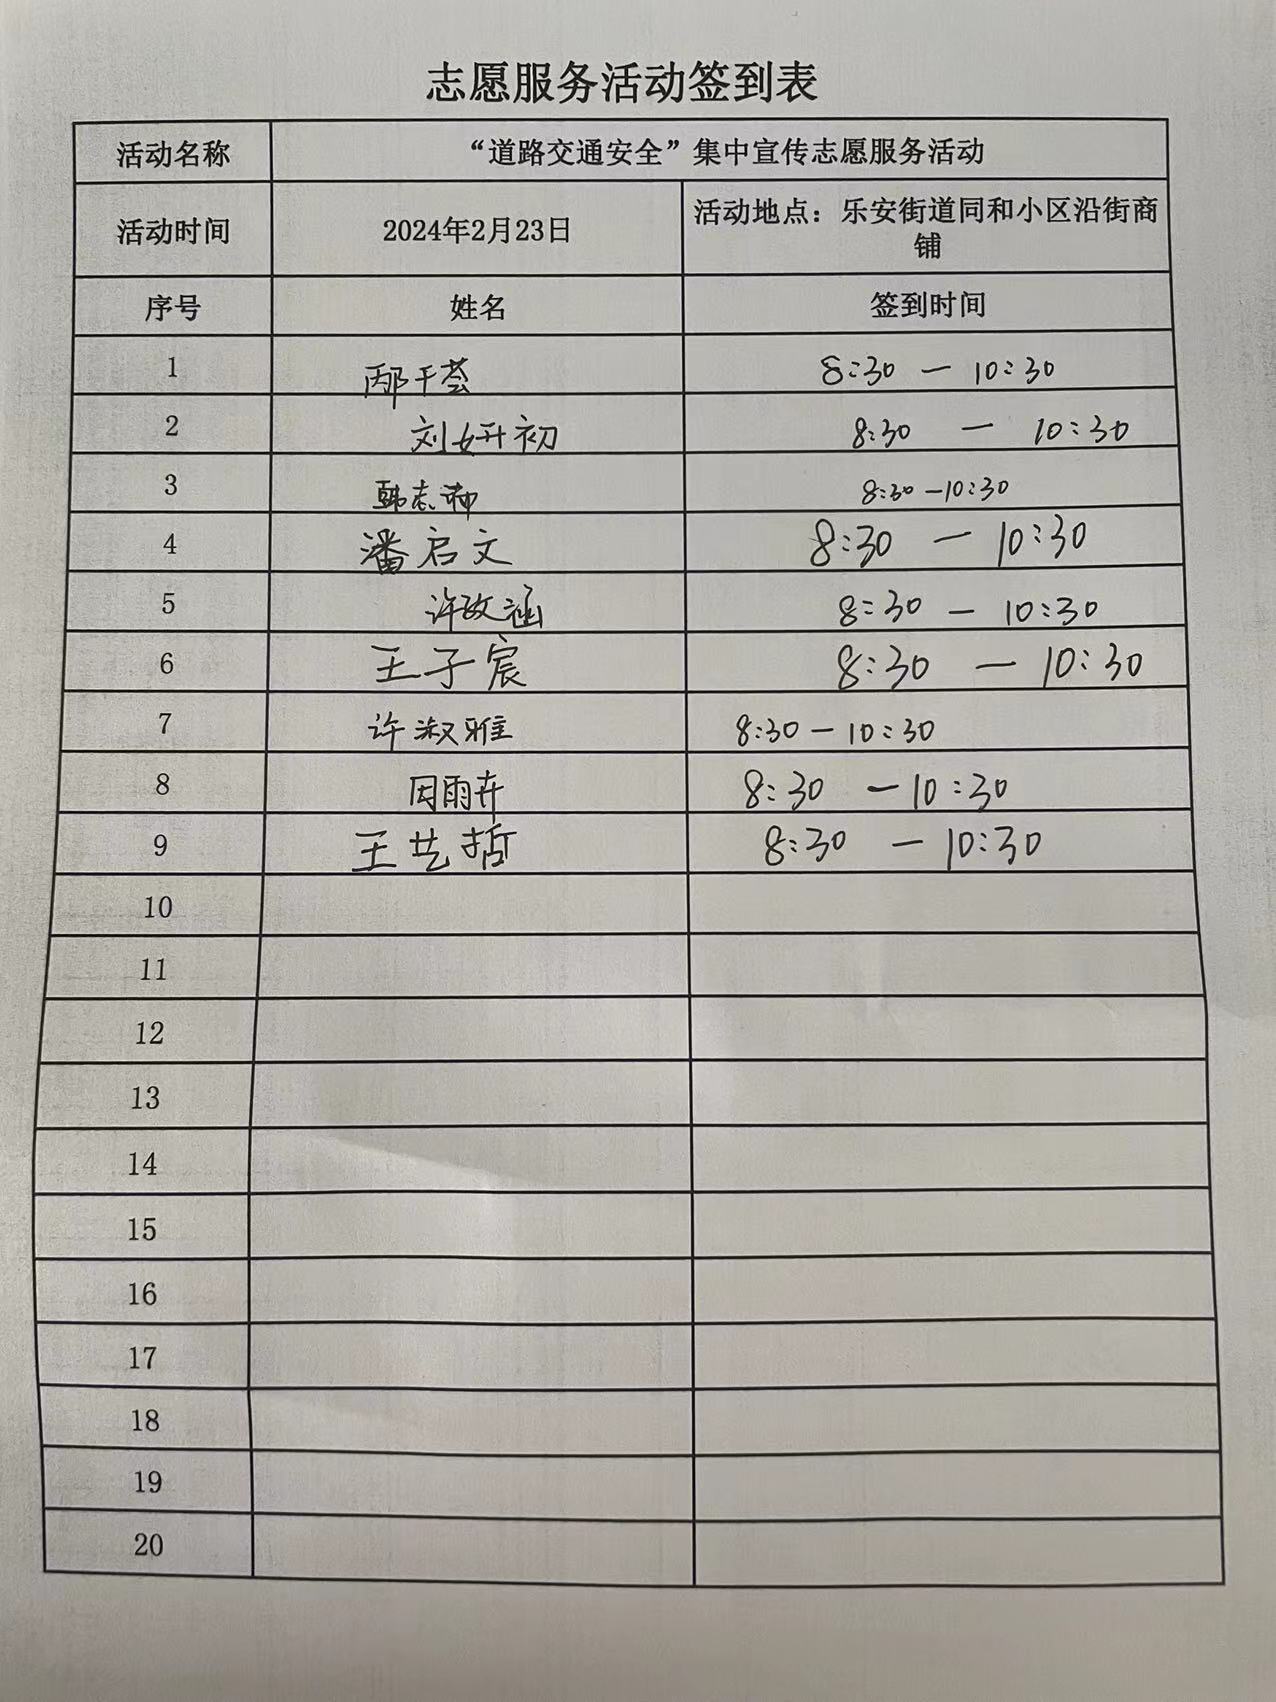 志愿服务活动签到表
活动名称 “道路交通安全”集中宣传志愿服务活动
活动时间 2024年2月23日 活动地点：乐安街道同和小区沿街商
铺
序号 姓名 签到时间
1 邴千荟 8:30 — 10:30
2 刘妍初 8:30 — 10:30
3 韩志 8:30 — 10:30
4 潘启文 8:30 — 10:30
5 许政涵 8:30 — 10:30
6 王子宸 8:30 — 10:30
7 许淑雅 8:30 — 10:30
8 雨卉 8:30 — 10:30
9 王艺哲 8:30 — 10:30
10
11
12
13
14
15
16
17
18
19
20